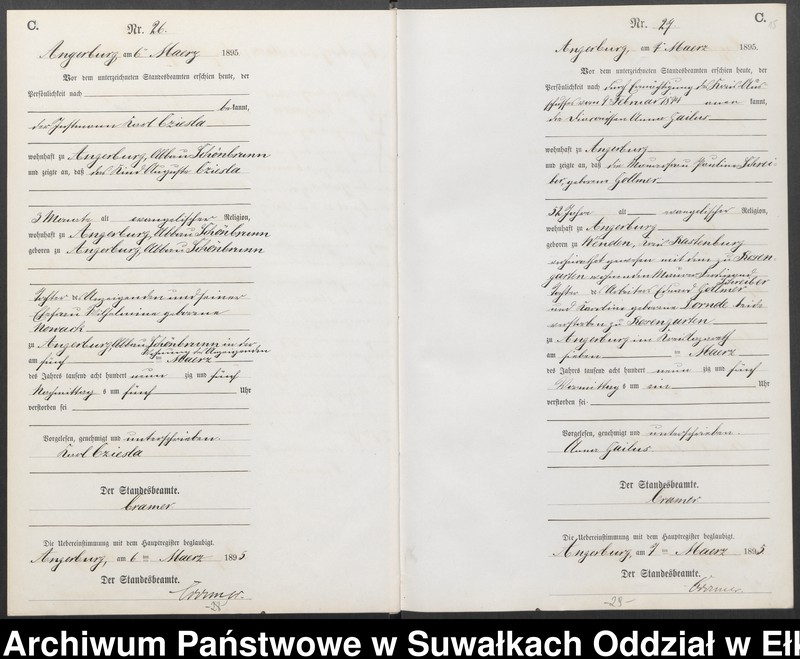 C.
Nr. 26.
Angerburg, am 6 Maerz 1895.
Vor dem unterzeichneten Standesbeamten erschien heute, der
Persönlichkeit nach
bekannt,
der Instmann Karl Cziesla
wohnhaft zu Angerburg, Abbau Schönbrunn
und zeigte an, daß das Kind Auguste Cziesla
3 Monate alt evangelischer Religion,
wohnhaft zu Angerburg, Abbau Schönbrunn
geboren zu Angerburg, Abbau Schönbrunn
Tochter des Anzeigenden und seiner
Ehefrau Wilhelmine geborene
Nowack
zu Angerburg Abbau Schönbrunn in der
Wohnung des Anzeigenden
am fünf ten Maerz
des Jahres tausend acht hundert neun zig und fünf
Nachmittags um fünf Uhr
verstorben sei
Vorgelesen, genehmigt und unterschrieben
Karl Cziesla
Der Standesbeamte.
Cramer
Die Uebereinstimmung mit dem Hauptregister beglaubigt.
Angerburg, am 6 ten Maerz 1895
Der Standesbeamte.
Cramer.
C.
Nr. 29
Angerburg, am 7 Maerz 1895.
Vor dem unterzeichneten Standesbeamten erschien heute, der
Persönlichkeit nach durch Ermächtigung des Kreis Aus
schusses vom 9 Februar 1891 kannt,
Anna Gailus
wohnhaft zu Angerburg
und zeigte an, daß die Maurerfrau Pauline Schrei
ber, geborene Gollmer
52 Jahre alt evangelischer Religion,
wohnhaft zu Angerburg
geboren zu Wenden, Kreis Rastenburg
verheirathet gewesen mit dem zu Rosen
garten wohnenden Maurer Ferdinand
Schreiber
Tochter des Arbeiters Eduard Gollmer
und Karoline geborene Dornde beide
verstorben zu Rosengarten
zu Angerburg im
am sieben ten Maerz
des Jahres tausend acht hundert neun zig und fünf
Vormittags um ein Uhr
verstorben sei
Vorgelesen, genehmigt und unterschrieben
Anna Gailus
Der Standesbeamte.
Cramer
Die Uebereinstimmung mit dem Hauptregister beglaubigt.
Angerburg, am 7 ten Maerz 1895
Der Standesbeamte.
Cramer
Archiwum Państwowe w Suwałkach Oddział w Ełk